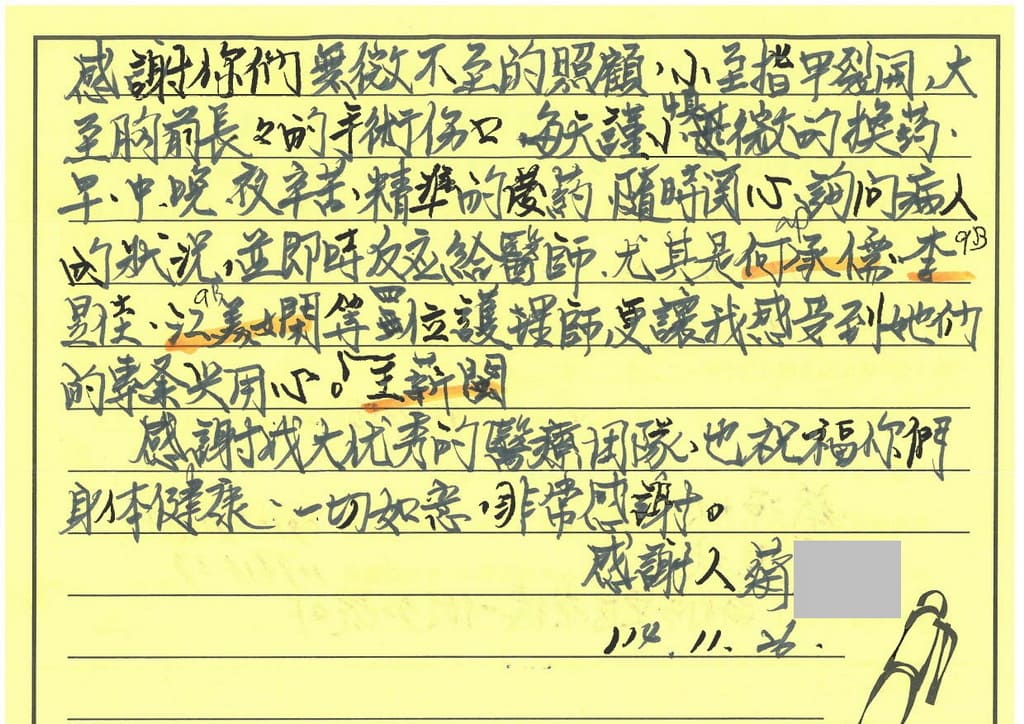 感謝你們無微不至的照顧,小至指甲裂開、大
至胸前長々的手術傷口 每天謹小慎微的換药.
早、中、晚 夜辛苦、精準的發药 隨時関心、詢问病人
的狀況,並即時反应給醫師.尤其是何承儒、李
9B
9B
江美嫻等 位護理師,更讓我感受到她們
的專業與用心。王薪閔
感謝成大优秀的醫療团隊、也祝福你們
身体健康、一切如意,非常感謝。
感謝人 蔡
114.11.26.